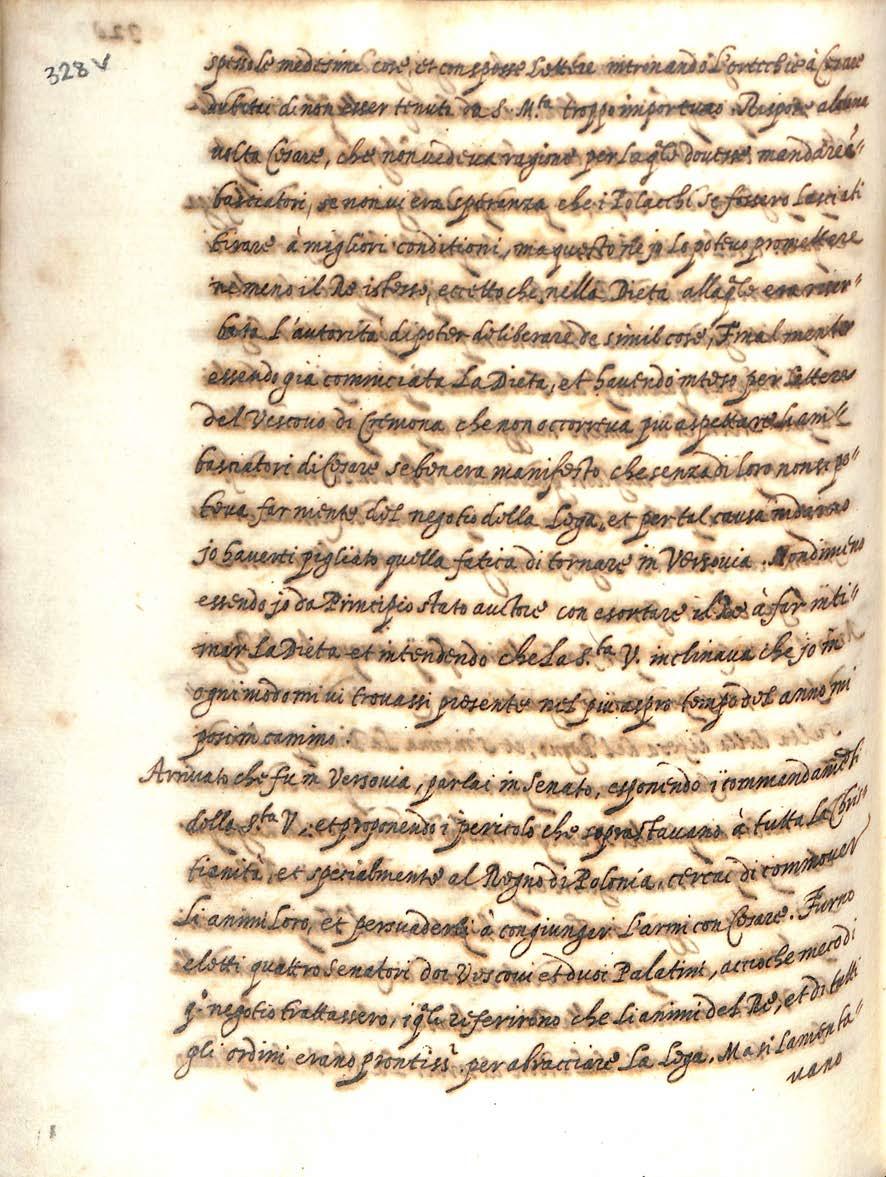 328 v
spesso le medesime cose, et con spesse lettere intronando l'orecchie à Cesare
dubitai di non esser tenuto da S. M.ta troppo importuno. Rispose alcuna
volta Cesare, che non vedeva ragione per la q̃le dovesse mandare ã"
basciatori, se non vi era speranza che i Polacchi se fossero lasciati
tirare à migliori conditioni, ma questo ne jo lo potevo promettere
ne meno il Re istesso, eccetto che nella Dieta alla q̃le era riser"
bata l'autorità di poter deliberare de simil cose, Finalmente
essendo gia cominciata la Dieta, et havendo inteso per lettere
del Vescovo di Cremona che non occorreva piu aspettare li am"
basciatori di Cesare se ben era manifesto che senza di loro non si po"
teva far niente del negotio della Lega, et per tal causa indarno
jo haverei pigliato quella fatica di tornare in Versovia. Nondimeno
essendo jo da Principio stato auctore con esortare il Re à far inti"
mar la Dieta et intendendo che la S.ta V. inclinava che jo in
ogni modo mi vi trovassi presente nel piu aspro tempo del anno mi
posi in camino.
Arrivato che fu in Versovia, parlai in Senato, esponendo i commandamẽti
della S.ta V., et proponendo i pericolo che soprastavano à tutta la Chris"
tianità, et specialmente al Regno di Polonia, cercai di commover
li animi loro, et persuaderli à congiunger l'armi con Cesare. Furno
eletti quattro Senatori doi Vescovi et duoi Palatini, accioche meco di
q.o negotio trattassero, i q̃li referirono che li animi del Re, et di tutti
gli ordini erano prontiss.i per abracciare la Lega. Ma si lamenta"
vano